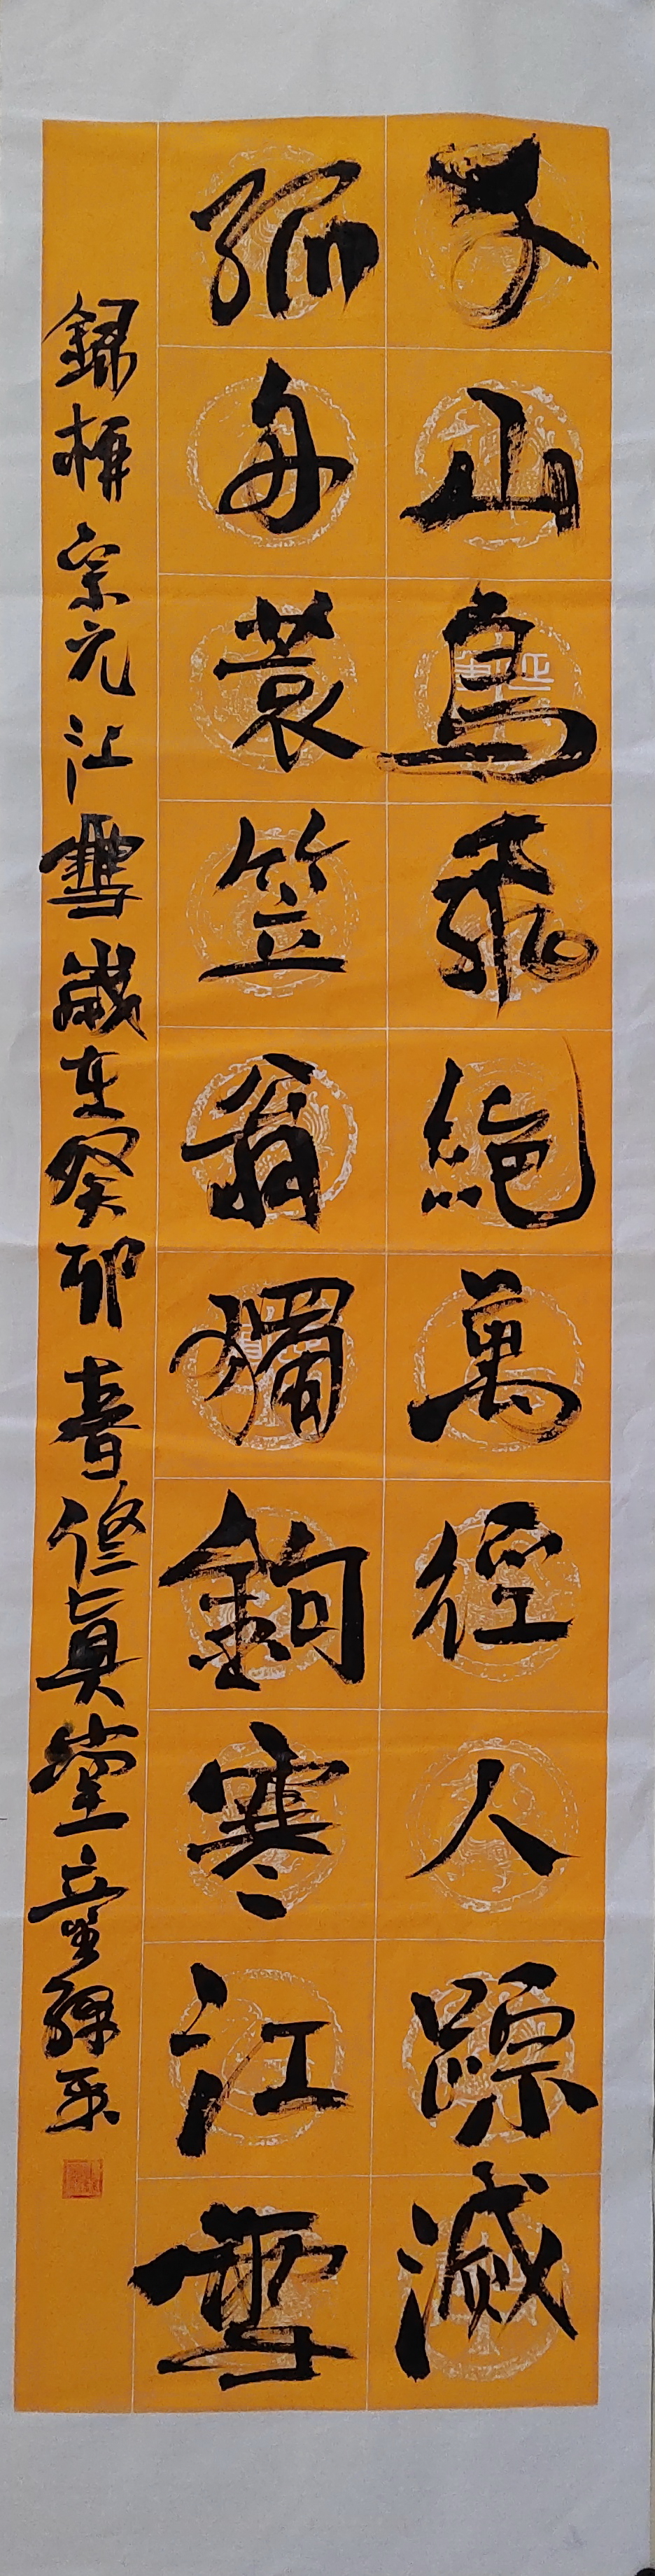 千山鳥飛絕萬徑人踪滅
孤舟蓑笠翁獨釣寒江雪
錄柳宗元江雪歲在癸卯春修真堂童